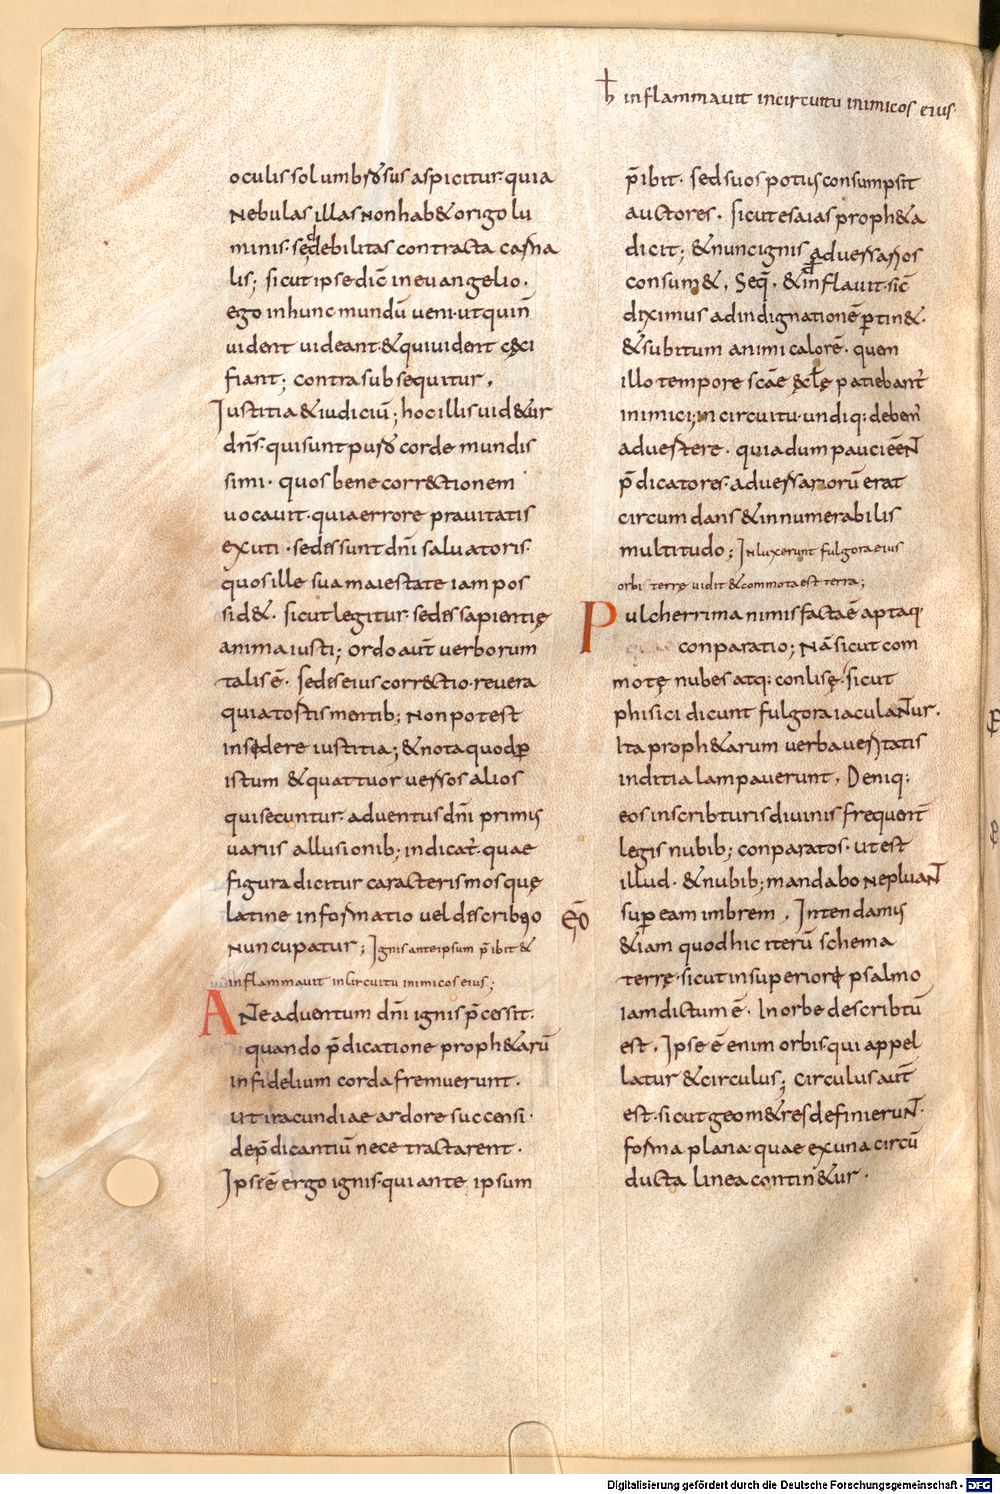 ħ inflammauit incircuitu inimicos eius·
oculis sol umbrosus aspicitur· quia
Nebulas illas Non hab& origo lu
minis· sed debilitas contracta carna
lis; sicut ipse dic̄ in euangelio·
ego in hunc mundū ueni· ut qui n̄
uident uideant· & qui uident cęci
fiant; contra subsequitur,
Iustitia & iudiciū; hoc illis uid&ur
dn̄s· qui sunt puro corde mundis
simi· quos bene correctionem
uocauit· quia errore prauitatis
exuti· sedes sunt dn̄i saluatoris·
quos ille sua maiestate iam pos
sid&· sicut legitur· sedes sapientię
anima iusti; ordo aut̄ uerborum
talis ē· sedes eius correctio· reuera
quia tostis mentib; Non potest
insedere iustitia; & nota quod ꝑ
istum & quattuor uersos alios
qui secuntur· aduentus dn̄i primis
uariis allusionib; indicat̄· quae
figura dicitur caracterismos quę
latine informatio uel describtio
Nuncupatur; Ignis ante ipsum p̄ibit &
inflammauit in circuitu inimicos eius;
ANte aduentum dn̄i ignis p̄cessit·
quando p̄dicatione proph&arū
infidelium corda fremuerunt·
ut iracundiae ardore succensi·
de p̄dicantiū nece tractarent·
Ipse ē ergo ignis· qui ante ipsum
p̄ibit· sed suos potus consumpsit
auctores· sicut esaias proph&a
dicit; & nunc ignis aduersarios
consum&, Seq̄· & inflauit· sic̄
diximus ad indignationē ꝑtin&·
& subitum animi calorē· quem
illo tempore sc̄ae ęcl̄ę patiebant̄
inimici; in circuitu· undiq; deben̄
aduertere· quia dum pauci eēNT
p̄dicatores· aduersariorū erat
circumdans & innumerabilis
multitudo; INluxerunt fulgora eius
orbi terrę uidit & commota est terra;
Pulcherrima nimis facta ē aptaq;
conparatio; Nā sicut com
motę nubes atq; conlisę· sicut
phisici dicunt fulgora iaculaNTur·
Ita proph&arum uerba ueritatis
inditia lampauerunt, Deniq;
eos in scribturis diuinis frequent̄
legis nubib; conparatos· ut est
illud· & nubib; mandabo ne pluaNT
suꝑ eam imbrem, Intendamus
& iam quod hic iterū schema
terrę· sicut in superiorę psalmo
iam dictum ē· In orbe describtū
est, Ipse ē enim orbis· qui appel
latur & circulus; circulus aut̄
est· sicut geom&res definieruNT·
forma plana· quae ex una circū
ducta linea contin&ur·
Digitalisierung gefördert durch die Deutsche Forschungsgemeinschaft - DFG